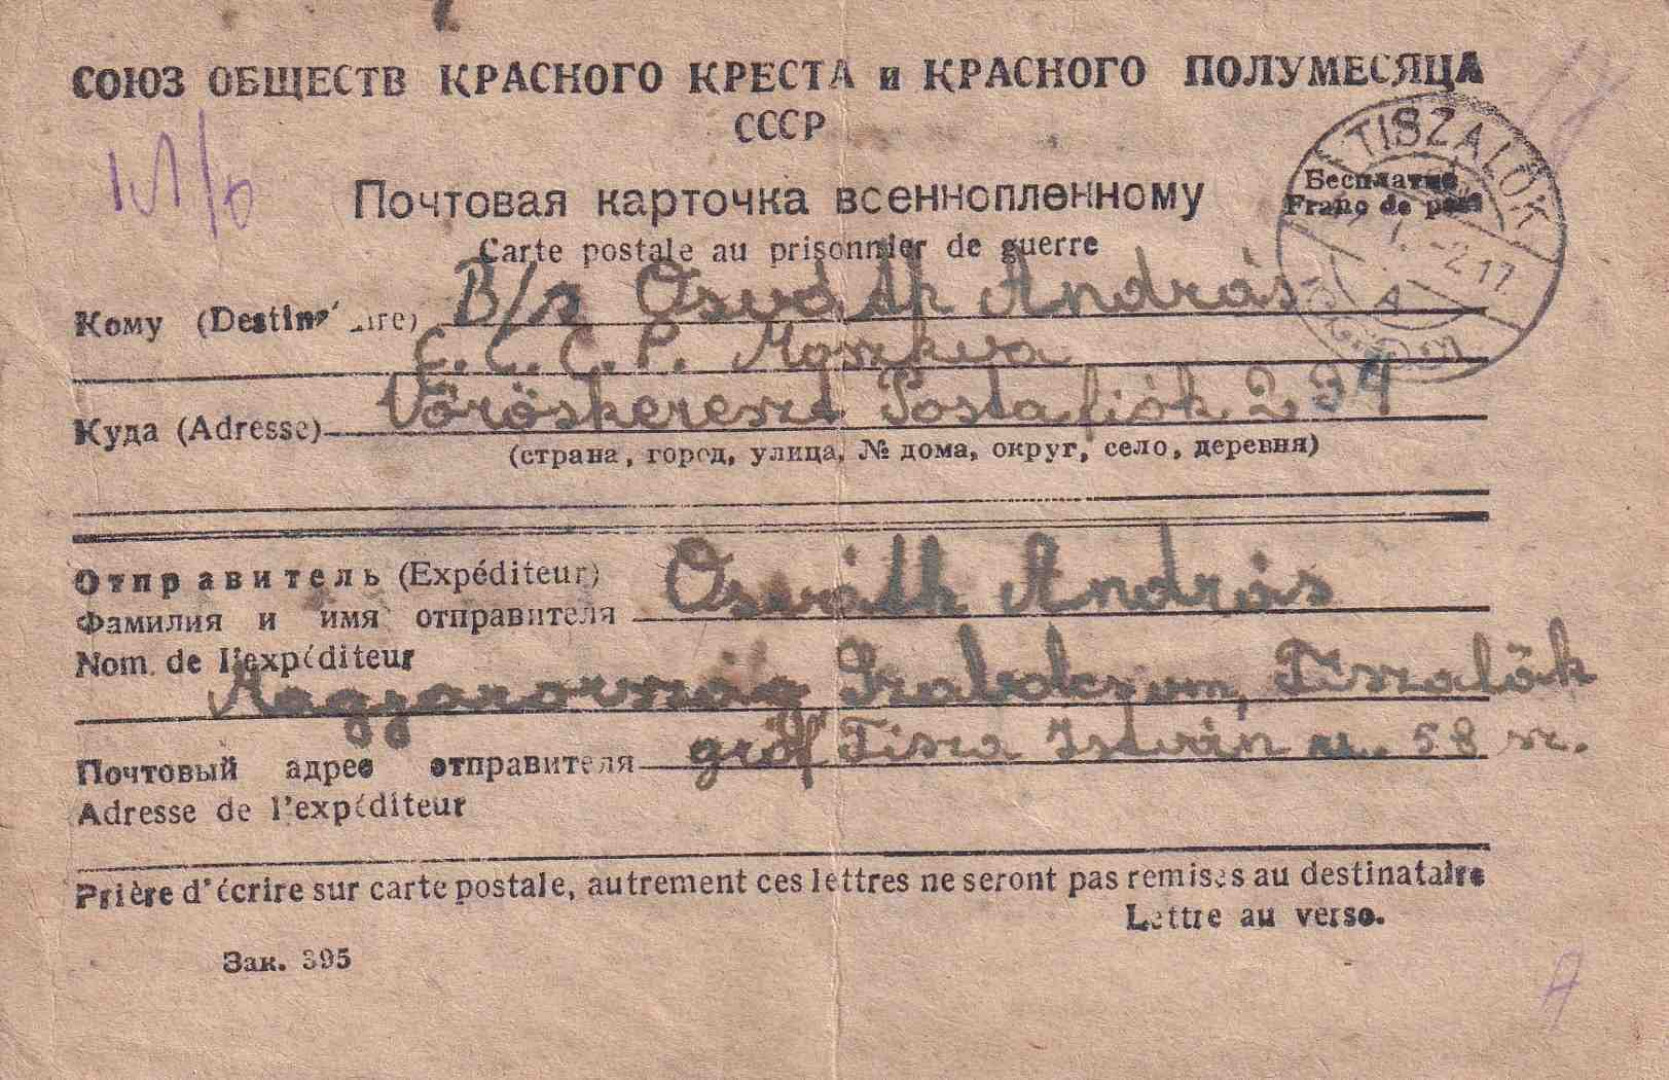 СОЮЗ ОБЩЕСТВ КРАСНОГО КРЕСТА и КРАСНОГО ПОЛУМЕСЯЦА
СССР
TISZALÖK
Бесплатно
Franc de port
Почтовая карточка всеннопленному
Carte postale au prisonnier de guerre
Кому (Destinataire) Osváth András
C.C.C.P. Moszkva
Куда (Adresse) Vöröskereszt Postafiók 234
(страна, город, улица, № дома, округ, село, деревня)
Отправитель (Expéditeur) Osváth András
Фамилия и имя отправителя
Nom de l'expéditeur
Magyarország Szabolcsvm, Tiszalök
Почтовый адрес отправителя gróf Tisza István u. 58 sz.
Adresse de l'expéditeur
Prière d'écrire sur carte postale, autrement ces lettres ne seront pas remises au destinataire
Lettre au verso.
Зак. 395